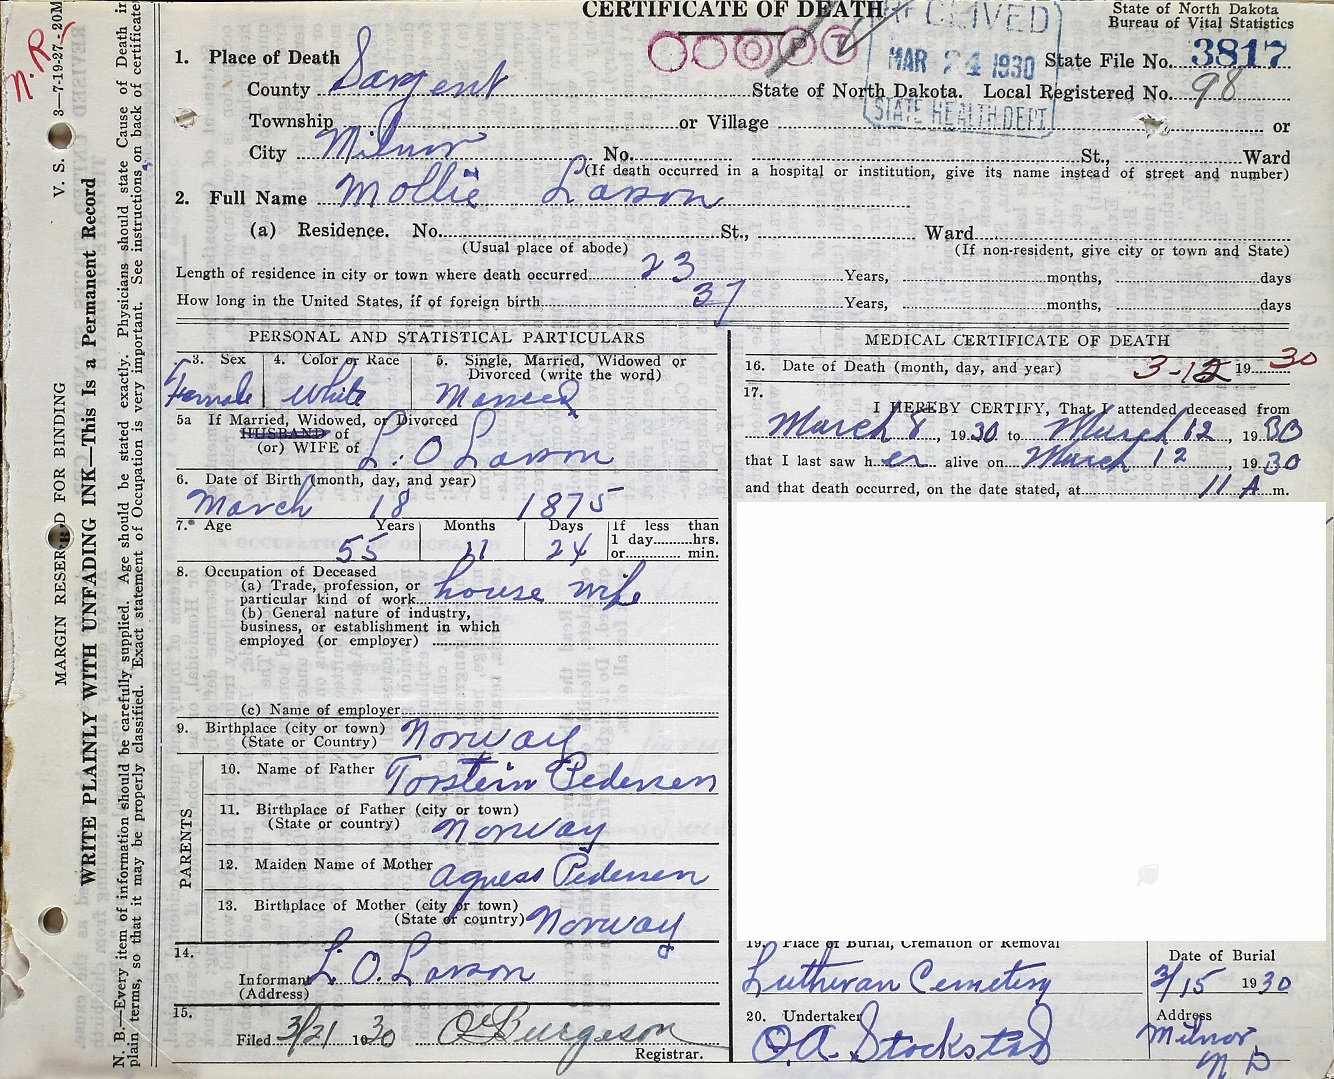 CERTIFICATE OF DEATH
State of North Dakota
Bureau of Vital Statistics
RECEIVED
MAR 24 1930
STATE HEALTH DEPT
N.R.
V. S. 3—7-19-27--20M
State File No. 3817
1. Place of Death
County Sargent State of North Dakota. Local Registered No. 98
Township or Village or
City Milnor No. St., Ward
(If death occurred in a hospital or institution, give its name instead of street and number)
2. Full Name Mollie Larson
(a) Residence. No. St., Ward
(Usual place of abode) (If non-resident, give city or town and State)
Length of residence in city or town where death occurred 23 Years, months, days
How long in the United States, if of foreign birth 37 Years, months, days
PERSONAL AND STATISTICAL PARTICULARS
3. Sex 4. Color or Race 5. Single, Married, Widowed or
Divorced (write the word)
Female White Married
5a If Married, Widowed, or Divorced
HUSBAND of
(or) WIFE of L. O Larson
6. Date of Birth (month, day, and year)
March 18 1875
7. Age Years Months Days If less than
1 day hrs.
or min.
55 11 24
8. Occupation of Deceased
(a) Trade, profession, or
particular kind of work house wife
(b) General nature of industry,
business, or establishment in which
employed (or employer)
(c) Name of employer
9. Birthplace (city or town)
(State or Country) Norway
PARENTS
10. Name of Father Torstein Pedersen
11. Birthplace of Father (city or town)
(State or country) Norway
12. Maiden Name of Mother Agness Pedersen
13. Birthplace of Mother (city or town)
(State or country) Norway
14.
Informant L. O. Larson
(Address)
15.
Filed 3/21 1930 O Burgeson
Registrar.
MEDICAL CERTIFICATE OF DEATH
16. Date of Death (month, day, and year) 3-12 1930
17.
I HEREBY CERTIFY, That I attended deceased from
March 8, 1930 to March 12, 1930
that I last saw her alive on March 12, 1930
and that death occurred, on the date stated, at 11 A m.
19. Place of Burial, Cremation or Removal
Lutheran Cemetery
Date of Burial
3/15 1930
20. Undertaker
O. A. Stockstad
Address
Milnor
N D
MARGIN RESERVED FOR BINDING
WRITE PLAINLY WITH UNFADING INK—This Is a Permanent Record
N. B.—Every item of information should be carefully supplied. Age should be stated exactly. Physicians should state Cause of Death in
plain terms, so that it may be properly classified. Exact statement of Occupation is very important. See instructions on back of certificate